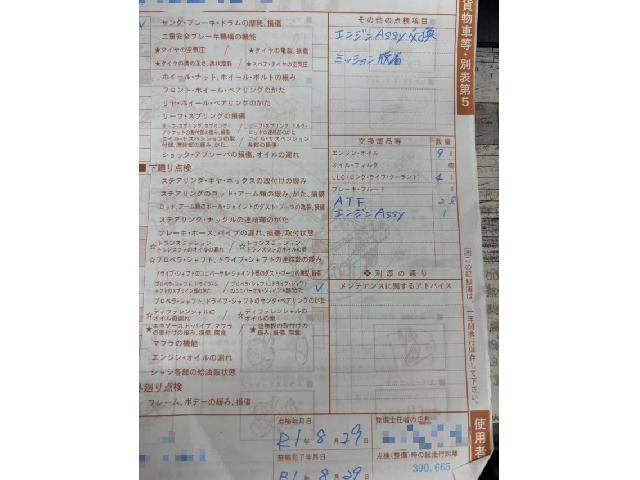 センタ・ブレーキ・ドラムの摩耗、損傷
二重安全ブレーキ機構の機能
★タイヤの空気圧
★タイヤの亀裂、損傷
★タイヤの溝の深さ、異状摩耗
★スペア・タイヤの空気圧
ホイール・ナット、ホイール・ボルトの緩み
フロント・ホイール・ベアリングのがた
リヤ・ホイール・ベアリングのがた
リーフ・スプリングの損傷
ショック・アブソーバの損傷、オイルの漏れ
下廻り点検
ステアリング・ギヤ・ボックスの取付けの緩み
ステアリングのロッド・アーム類の緩み、がた、損傷
ロッド、アーム類のボール・ジョイントのダスト・ブーツの亀裂、損傷
ステアリング・ナックルの連結部のがた
ブレーキ・ホース、パイプの漏れ、損傷、取付状態
☆プロペラ・シャフト、ドライブ・シャフトの連結部の緩み
ドライブ・シャフトのユニバーサル・ジョイント部のダスト・ブーツの亀裂、損傷
プロペラ・シャフト、ドライブ・シャフトのセンタ・ベアリングのがた
マフラの機能
エンジン・オイルの漏れ
シャシ各部の給油脂状態
外廻り点検
フレーム、ボデーの緩み、損傷
その他の点検項目
エンジンAssy交換
ミッション脱着
交換部品等
数量
エンジン・オイル 9
オイル・フィルタ 個
LLC(ロング・ライフ・クーラント) 4
ブレーキ・フルード
ATF 28
エンジンAssy 1
※別添の通り
メンテナンスに関するアドバイス
貨物車等・別表第5
この記録簿は、一年間携行保存して下さい。
使用者
点検年月日
R1年8月29日
整備完了年月日
R1 8 29
整備主任者の氏名
点検(整備)時の総走行距離
390,665